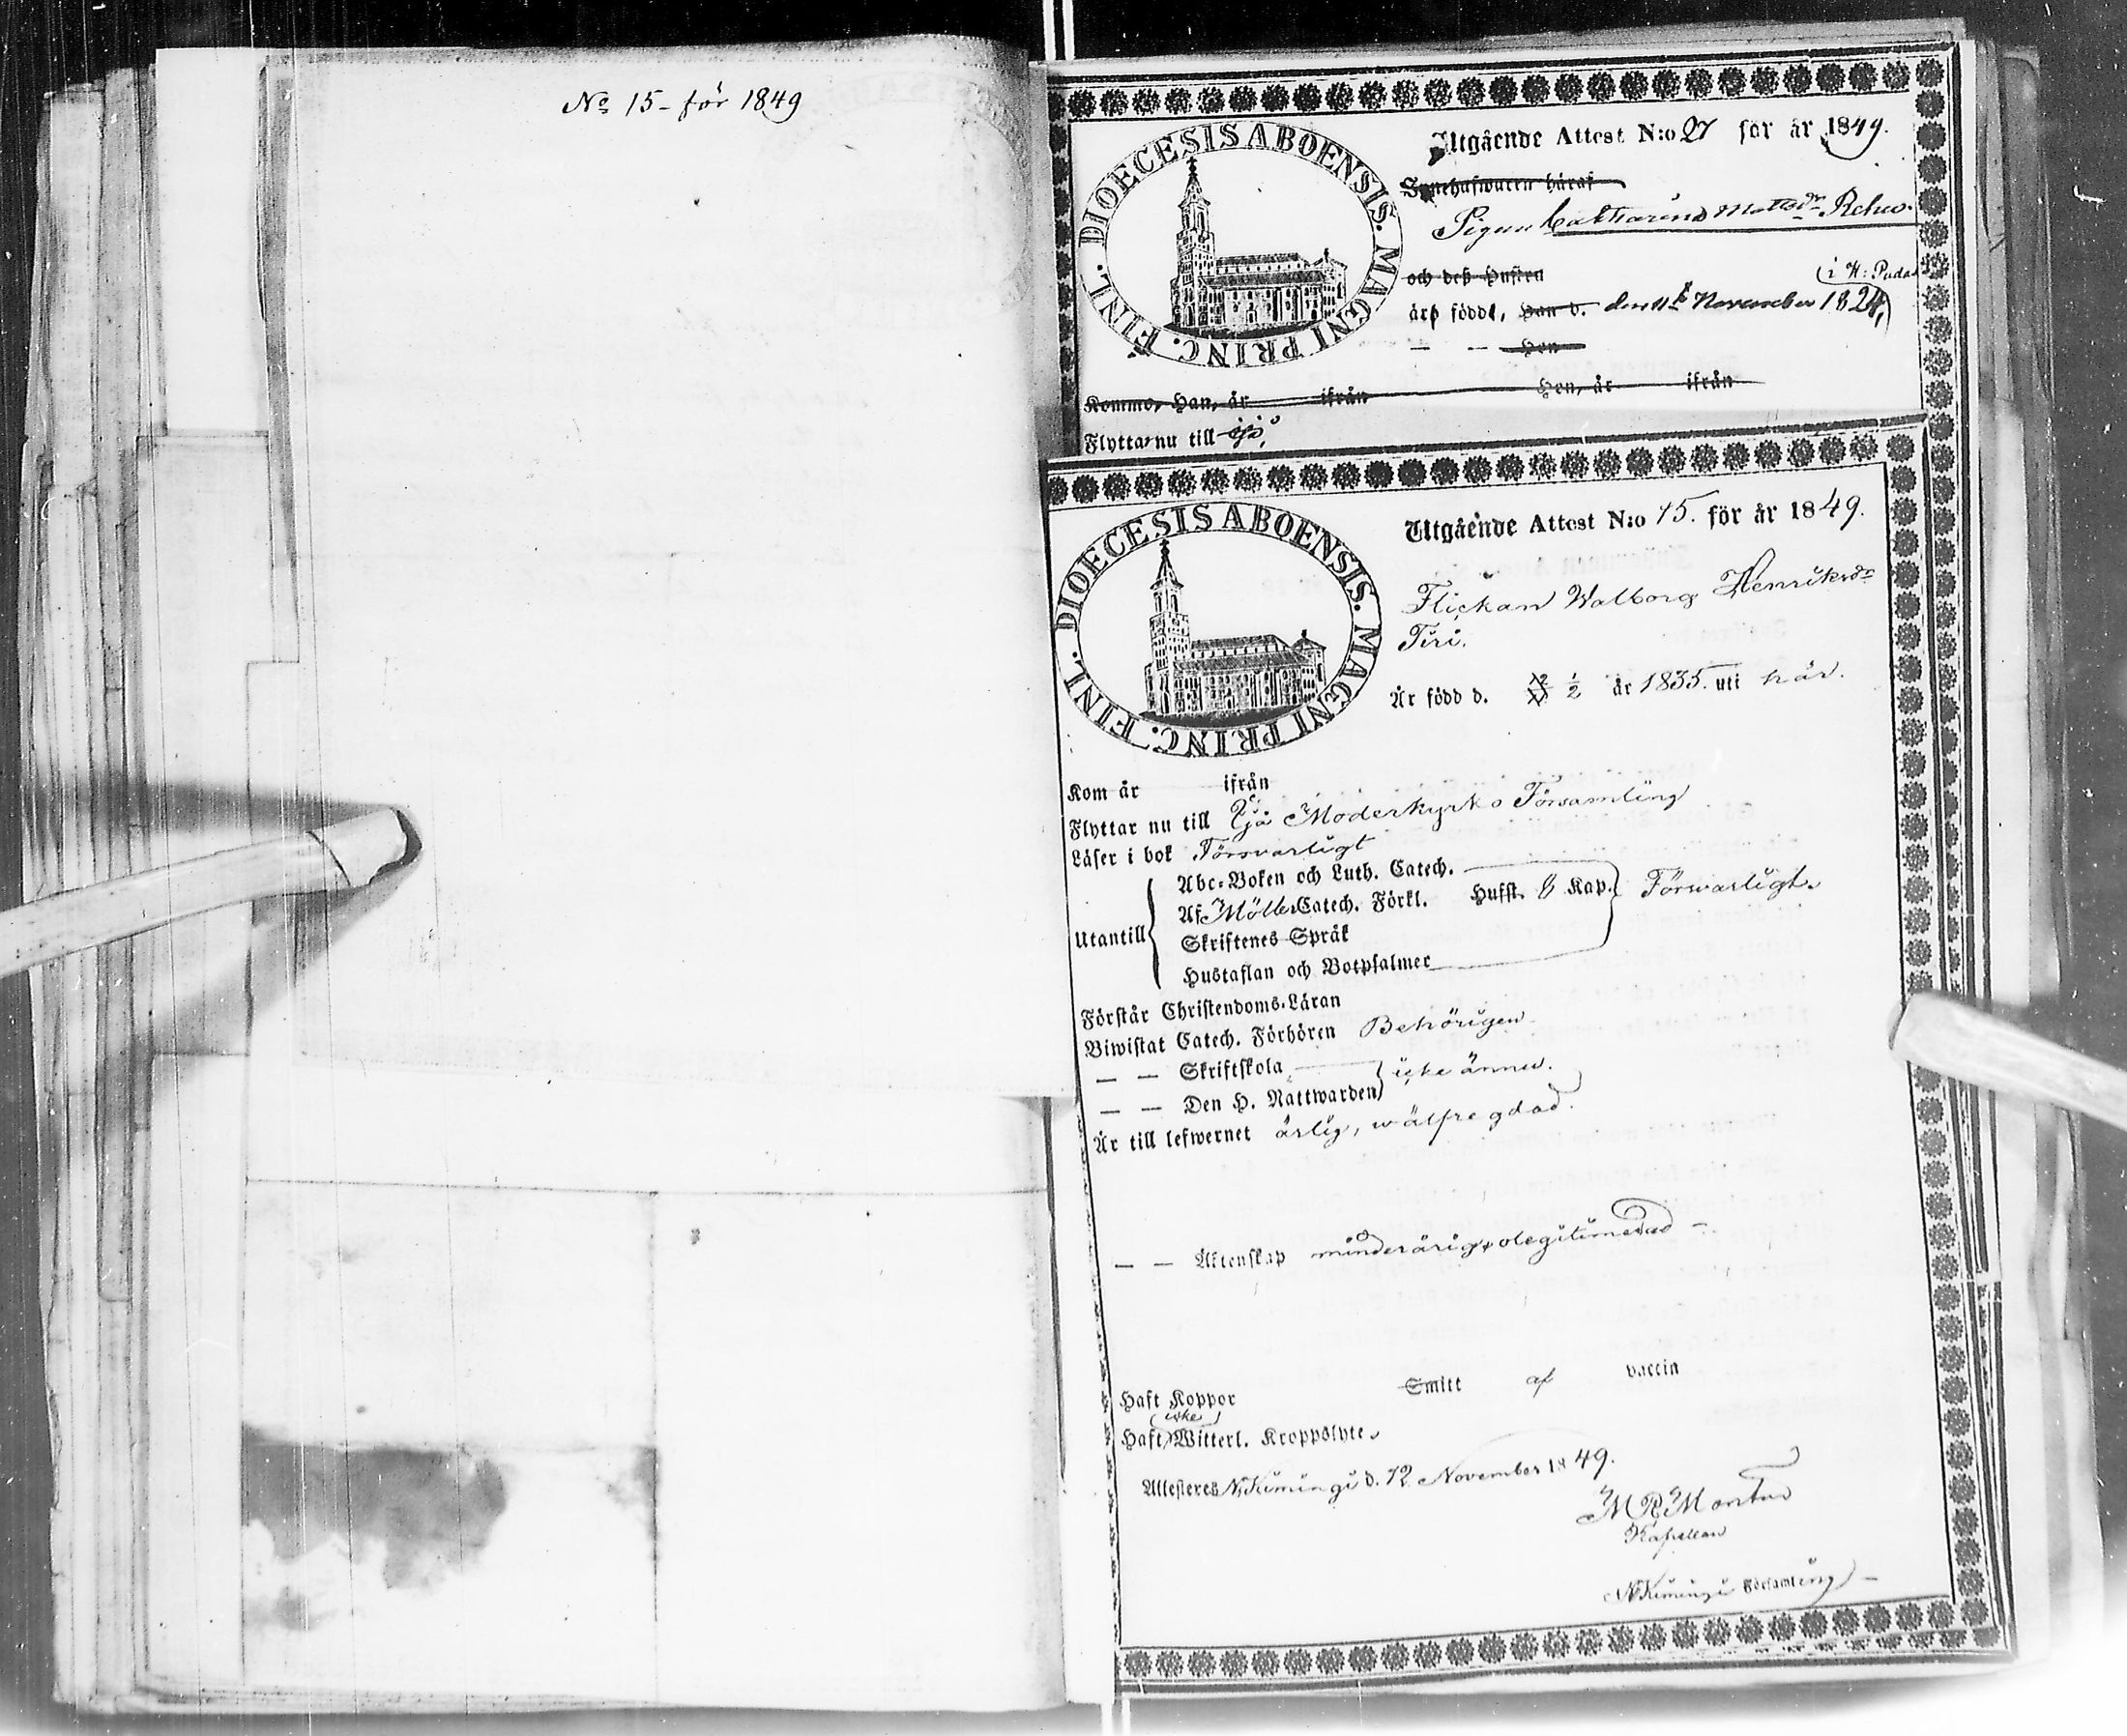 No 15 - för 1849
DIOECESIS ABOENSIS. MAGNI PRINC. FINL.
Utgående Attest N:o 27 för år 1849.
Innehafwaren häraf
Pigan Catharina Mattsdr
och deß Hustru
äro födde, Han d. den 11 November 1824,
— — Hon
Kommo, Han, år ifrån Hon, år ifrån
Flytta nu till
DIOECESIS ABOENSIS. MAGNI PRINC. FINL.
Utgående Attest N:o 15. för år 1849.
Flickan Walborg Henriksdr
Tiri.
Är född d. 12/2 år 1835. uti här.
Kom år ifrån
Flyttar nu till Ijå Moderkyrko Församling
Läser i bok Försvarligt
Utantill
Abc-Boken och Luth. Catech.
Af Möllers Catech. Förkl. Hufst. 8 Kap. Förswarligt.
Skriftenes Språk
Hustaflan och Botpsalmer
Förstår Christendoms-Läran
Biwistat Catech. Förhören Behörigen
— — Skriftskola
— — Den H. Nattwarden icke ännu.
Är till lefwernet ärlig, wälfregdad.
— — Äktenskap minderårig, olegitimerad -
Haft Koppor Smitt af vaccin
icke
Haft Witterl. Kroppslyte.
Attesteres N. Kimingi d. 12 November 1849.
M R Montin
Kapellan
N Kimingi Församling